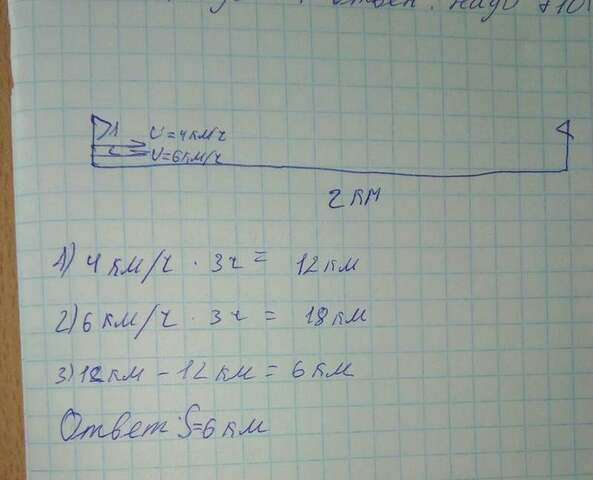 надо
1 V=4км/ч
2 V=6км/ч
2 км
1) 4 км/ч · 3ч = 12 км
2) 6 км/ч · 3ч = 18 км
3) 18км - 12 км = 6 км
Ответ: S=6 км